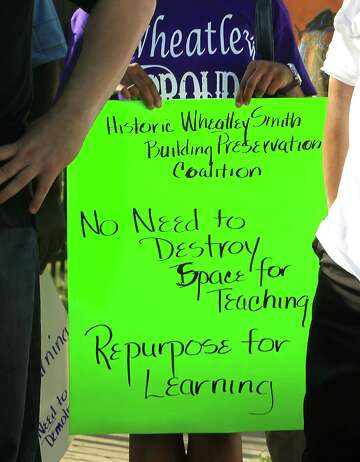 Wheatley
PROUD
Historic Wheatley Smith
Building Preservation
Coalition
No Need to
Destroy
Space for
Teaching
Repurpose for
Learning
Need to